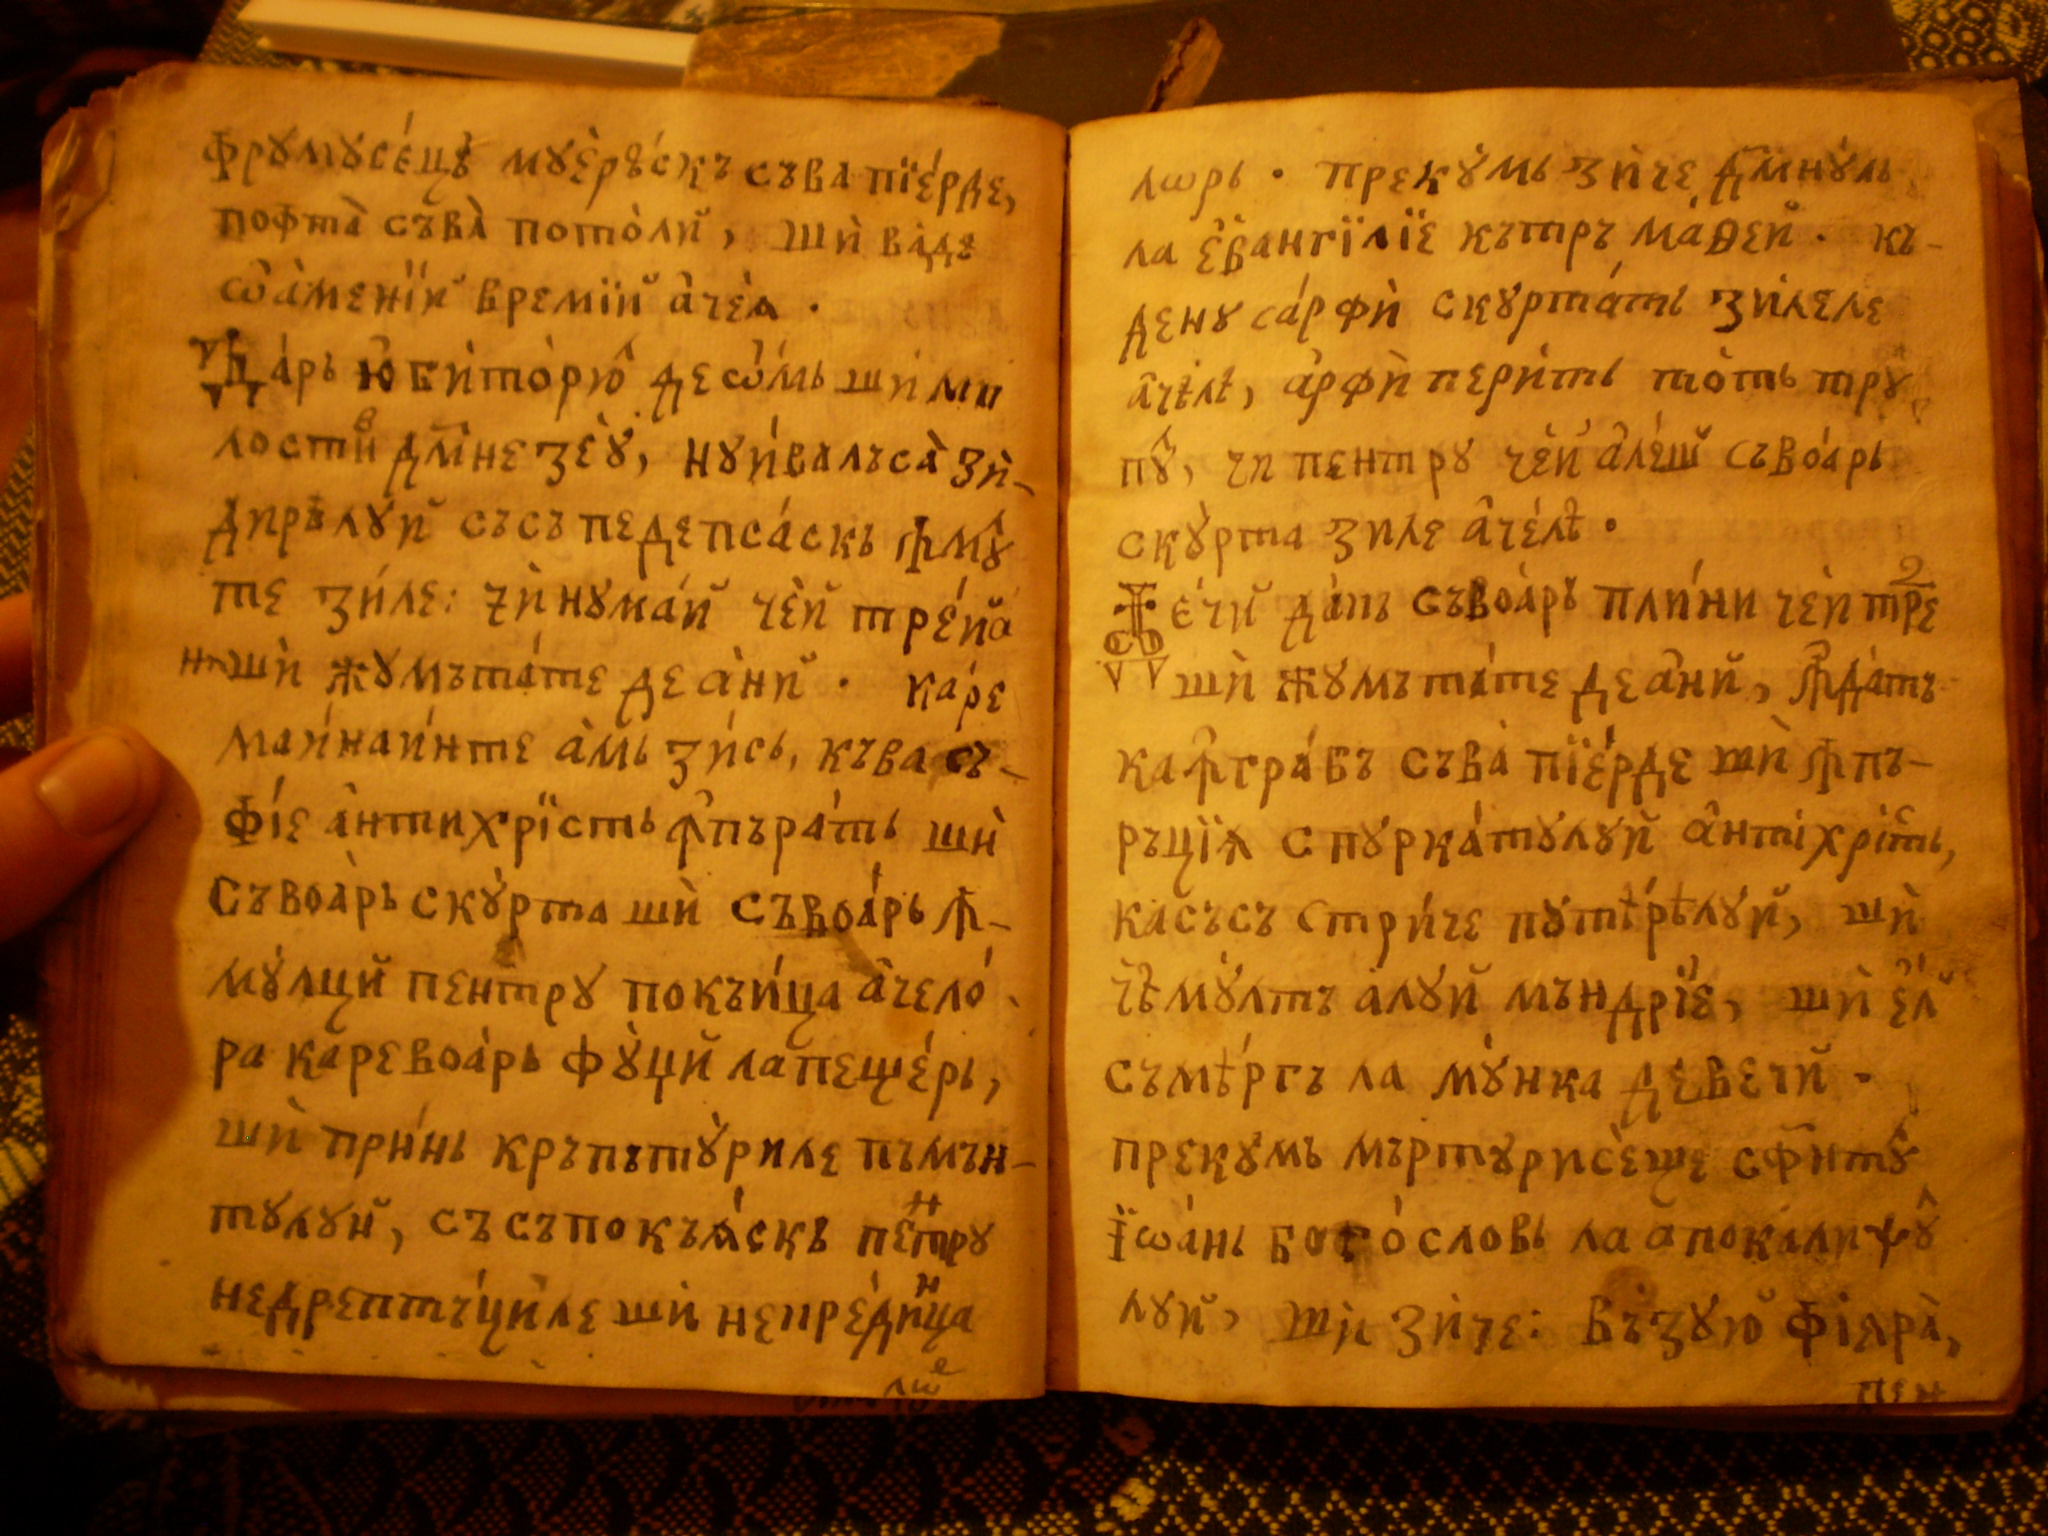 фрумусе́цѣ муѐрѣ́скъ съва пїе́рде,
пофта̀ съва̀ потѡ́ли̋, шѝ ва̀дѣ
ѡ҆а́менїи̋ времїи̋ а҆че́ѧ .
Да́рь ю҆би́то́рю̂ де ѡ҆́мь ши́ ми
лости́в дм҃незе́ꙋ̂, нуи́валъса̀ зи̇̀-
дирѣлуй съсъ педепса́скъ ꙟмꙋ̂
те зи́ле: чѝ нума́й че̇̀й тре́йа
ни ши̇̀ жумъта́те де а́нй . ка́ре
май́наи́нте а́мь зи́сь, къва съ-
фі́е а҆нтихрїсть ꙟпъра́ть ши̇̀
Съвоа́рь скꙋ́рта ши̇̀ съвоа́рь ꙟ-
мꙋ́лци̋ пентру покъи́ца а҆чело́
ра каревоа́рь фꙋ́џи̋ лапеще́рь,
ши̇̀ при́нь кръпътꙋ́риле пъмън-
тулуй, съсъпокъѧ́скъ пе́нтру
недрептъ́ци̇ле ши̇̀ непре́ди́нца
лѡе
лѡрь . прекꙋ́мь зи̇̀че дм҃нꙋ́ль
ла е҆ѵангїлїе кътръ ма́ѳей . къ-
дену са́рфи̇̀ скурта́ть зи́леле
а҆чѣлѣ, а҆́рфи̇̀ пери́ть то́ть тру
пꙋ̂, чи пентру че̇̀й а҆ле́ши̋ съвоа́рь
скꙋ́рта зиле а҆че́лѣ .
Де́чй да́пъ съвоа́рь пли́ни че̇̀й тре
ши̇̀ жумъта́те де а҆́нй, ꙟда́тъ
ка ꙟгра́бъ съва̀ пїе́рде ши̇̀ ꙟпъ-
ръцїѧ спурка́тулуй а҆нтіхрі́сть,
касъсъ стри́че путѣ́рѣлуй, ши̇̀
че̇̀ мꙋ́лтъ а́луй мъндрїе, ши̇̀ е҆́л
съмѣ́ргъ ла мꙋ́нка де вечй .
прекꙋмь мъртурисе́ще сф҃нтꙋ̂
Їѡа́нь Бого́словь ла апокалиѱꙋ̂
луй, ши̇̀ зи̇̀че: въ́зую̋ фіѧра̀,
пен